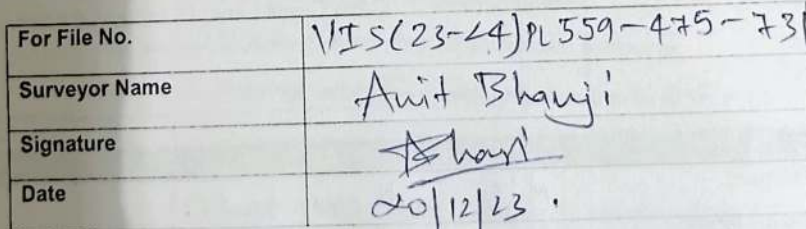 For File No. VIS(23-24)PL559-475-731
Surveyor Name Anit Bhanji
Signature
Date 20/12/23.